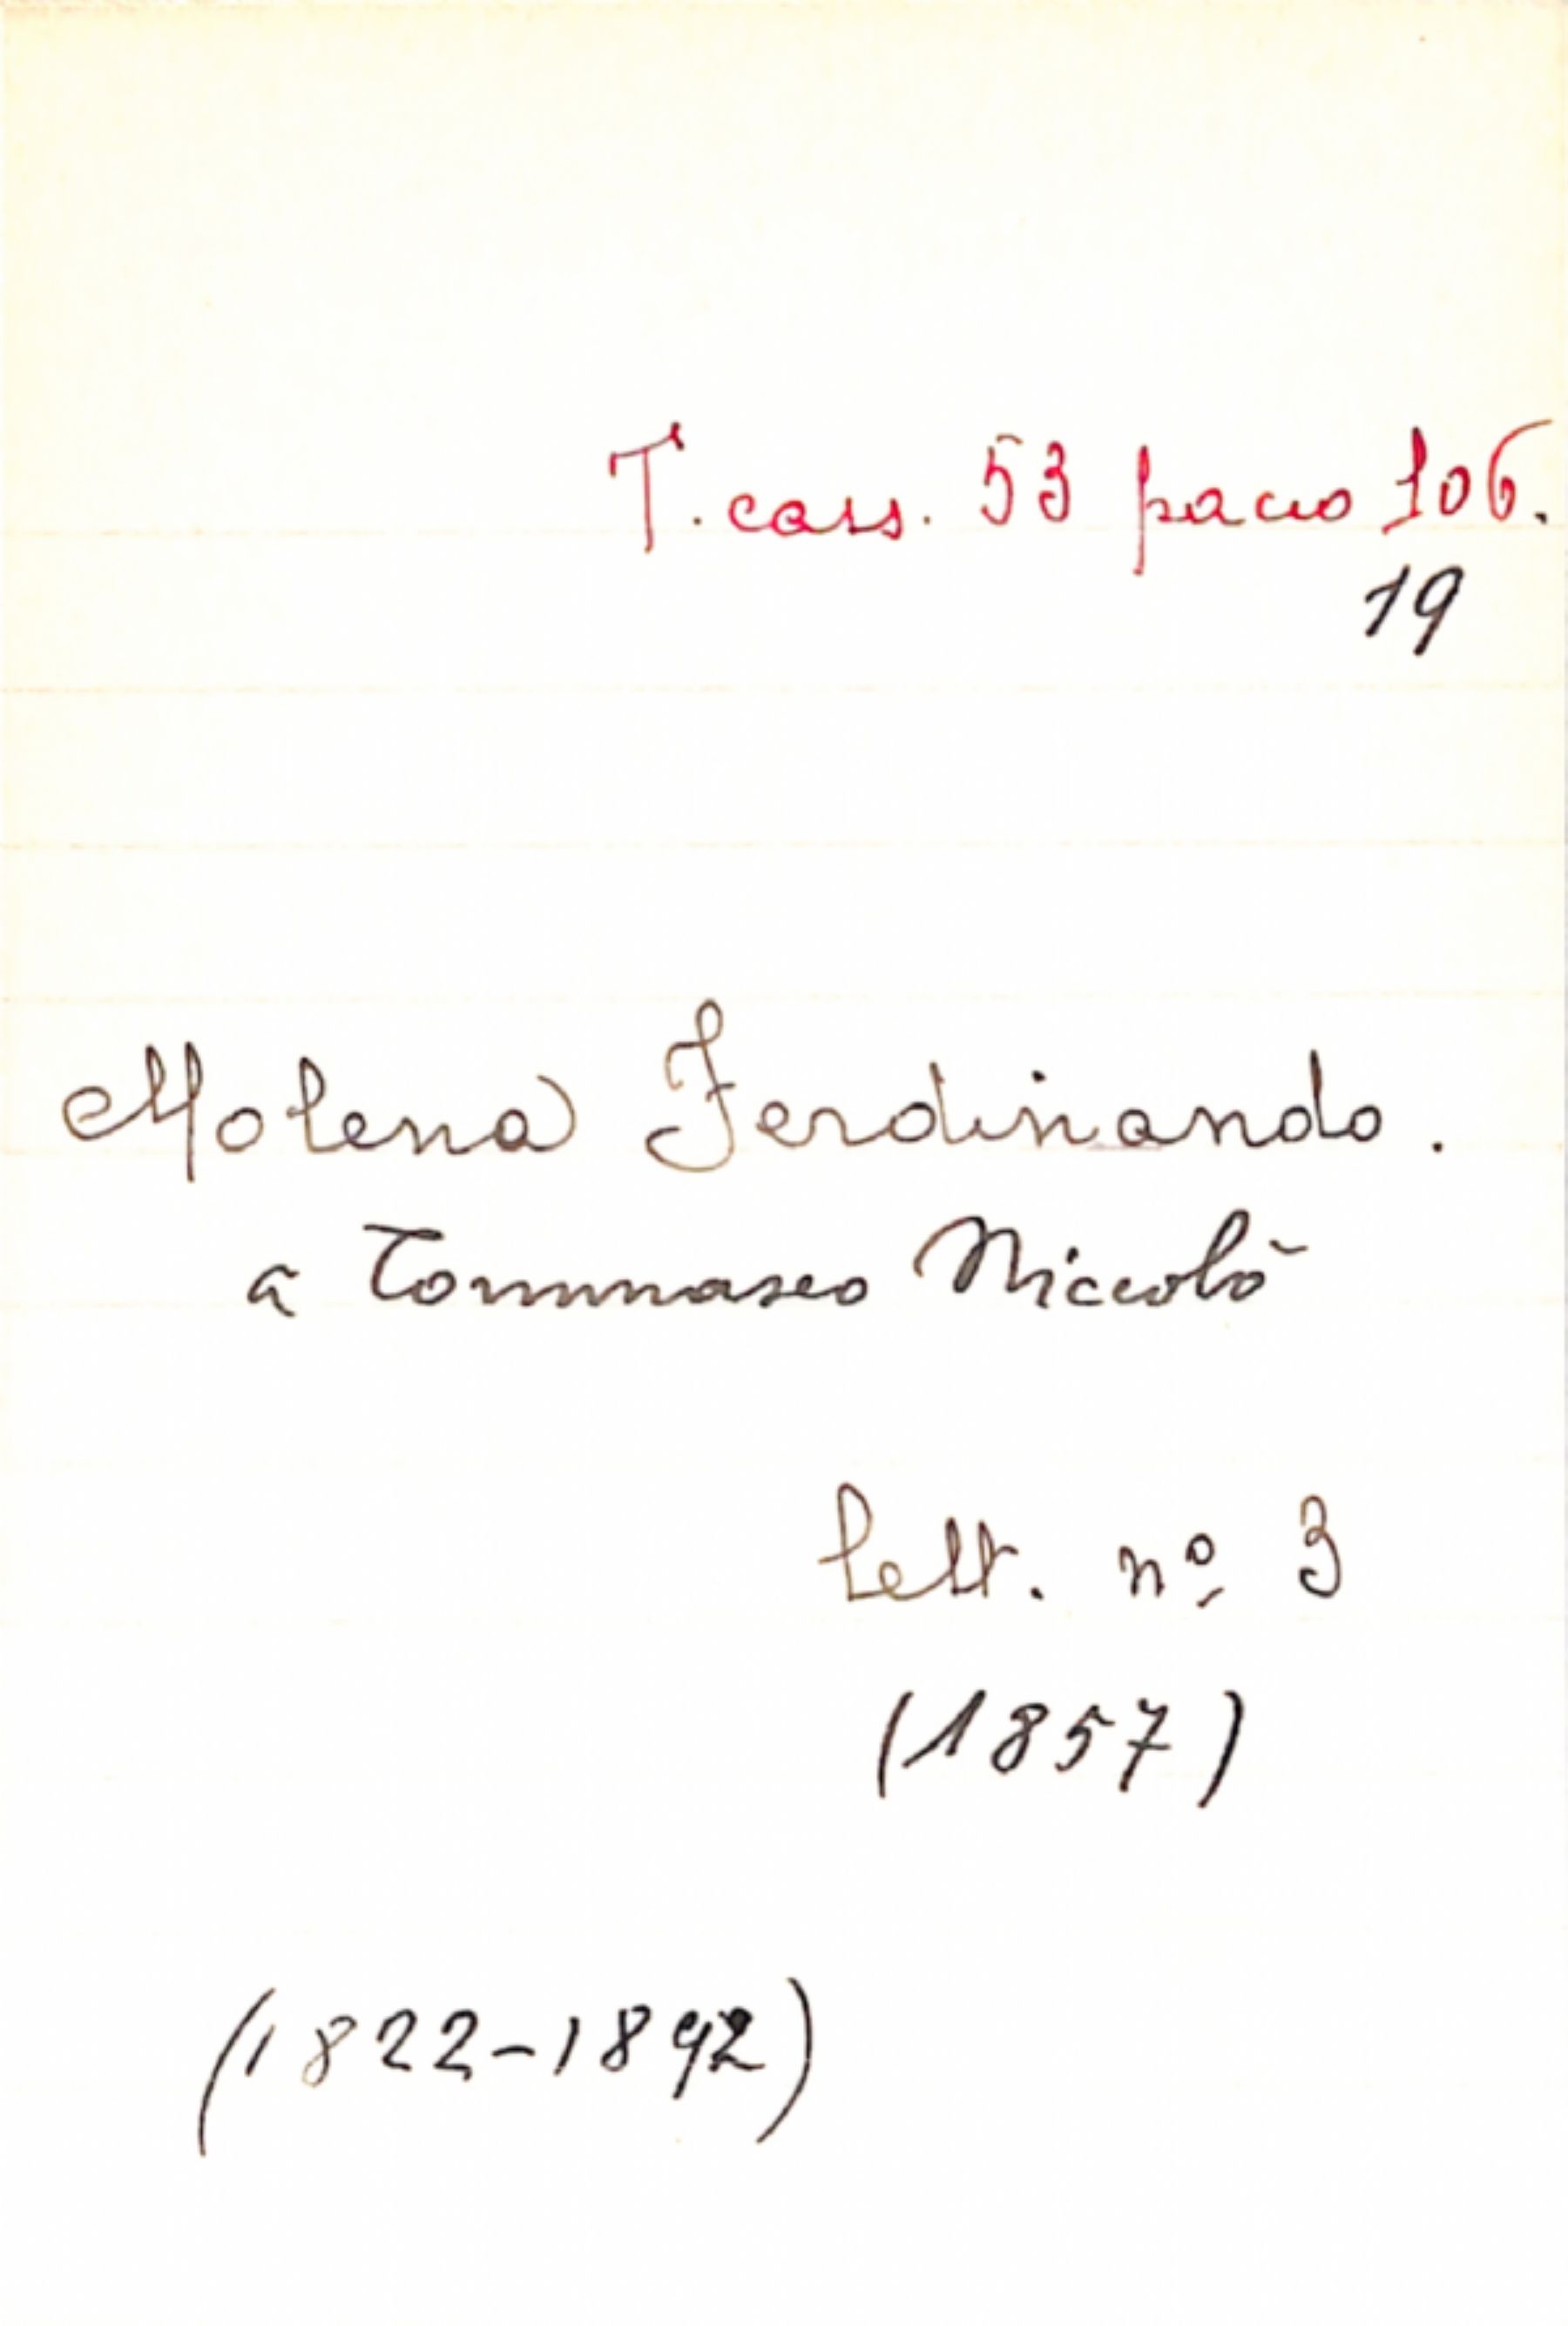 T. cass. 53 pacco 106.
19
Molena Ferdinando.
a Tommaseo Niccolò
lett. nº 3
(1857)
(1822-1892)